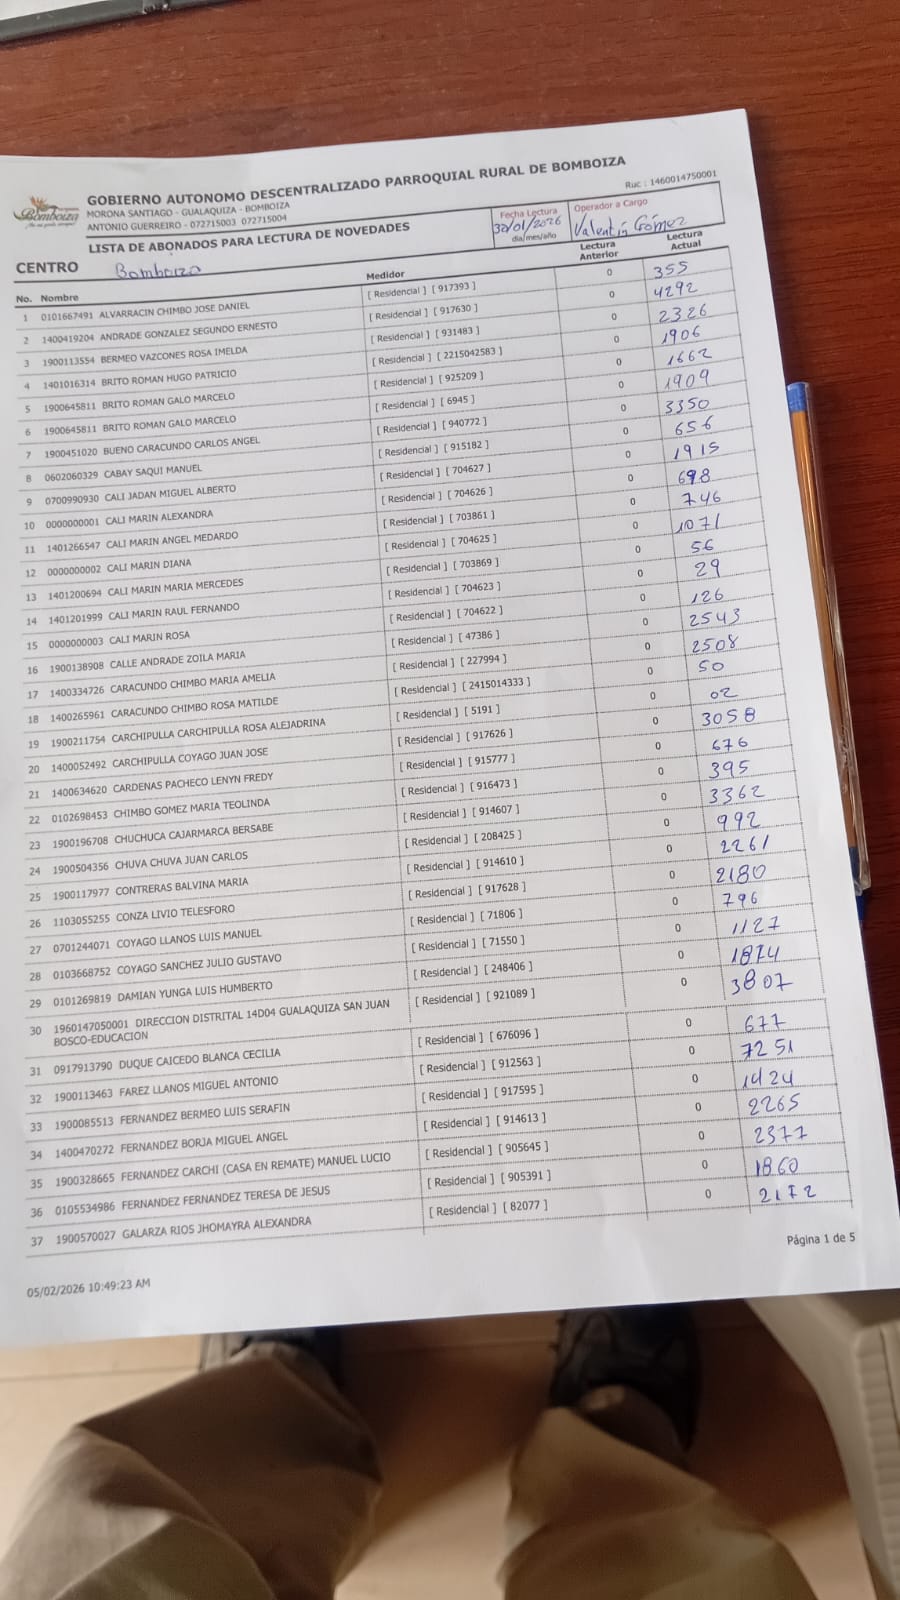 Bomboiza
GOBIERNO AUTONOMO DESCENTRALIZADO PARROQUIAL RURAL DE BOMBOIZA
MORONA SANTIAGO - GUALAQUIZA - BOMBOIZA
Ruc : 1460014750001
ANTONIO GUERREIRO - 072715003 072715004
LISTA DE ABONADOS PARA LECTURA DE NOVEDADES
Fecha Lectura 30/01/2026 dia/mes/año
Operador a Cargo Valentín Gómez
CENTRO Bomboiza
No. Nombre Medidor Lectura Anterior Lectura Actual
1 0101667491 ALVARRACIN CHIMBO JOSE DANIEL [ Residencial ] [ 917393 ] 0 355
2 1400419204 ANDRADE GONZALEZ SEGUNDO ERNESTO [ Residencial ] [ 917630 ] 0 4292
3 1900113554 BERMEO VAZCONES ROSA IMELDA [ Residencial ] [ 931483 ] 0 2326
4 1401016314 BRITO ROMAN HUGO PATRICIO [ Residencial ] [ 2215042583 ] 0 1906
5 1900645811 BRITO ROMAN GALO MARCELO [ Residencial ] [ 925209 ] 0 1662
6 1900645811 BRITO ROMAN GALO MARCELO [ Residencial ] [ 6945 ] 0 1909
7 1900451020 BUENO CARACUNDO CARLOS ANGEL [ Residencial ] [ 940772 ] 0 3350
8 0602060329 CABAY SAQUI MANUEL [ Residencial ] [ 915182 ] 0 656
9 0700990930 CALI JADAN MIGUEL ALBERTO [ Residencial ] [ 704627 ] 0 1915
10 0000000001 CALI MARIN ALEXANDRA [ Residencial ] [ 704626 ] 0 698
11 1401266547 CALI MARIN ANGEL MEDARDO [ Residencial ] [ 703861 ] 0 746
12 0000000002 CALI MARIN DIANA [ Residencial ] [ 704625 ] 0 1071
13 1401200694 CALI MARIN MARIA MERCEDES [ Residencial ] [ 703869 ] 0 56
14 1401201999 CALI MARIN RAUL FERNANDO [ Residencial ] [ 704623 ] 0 29
15 0000000003 CALI MARIN ROSA [ Residencial ] [ 704622 ] 0 126
16 1900138908 CALLE ANDRADE ZOILA MARIA [ Residencial ] [ 47386 ] 0 2543
17 1400334726 CARACUNDO CHIMBO MARIA AMELIA [ Residencial ] [ 227994 ] 0 2508
18 1400265961 CARACUNDO CHIMBO ROSA MATILDE [ Residencial ] [ 2415014333 ] 0 50
19 1900211754 CARCHIPULLA CARCHIPULLA ROSA ALEJADRINA [ Residencial ] [ 5191 ] 0 02
20 1400052492 CARCHIPULLA COYAGO JUAN JOSE [ Residencial ] [ 917626 ] 0 3058
21 1400634620 CARDENAS PACHECO LENYN FREDY [ Residencial ] [ 915777 ] 0 676
22 0102698453 CHIMBO GOMEZ MARIA TEOLINDA [ Residencial ] [ 916473 ] 0 395
23 1900196708 CHUCHUCA CAJARMARCA BERSABE [ Residencial ] [ 914607 ] 0 3362
24 1900504356 CHUVA CHUVA JUAN CARLOS [ Residencial ] [ 208425 ] 0 992
25 1900117977 CONTRERAS BALVINA MARIA [ Residencial ] [ 914610 ] 0 2261
26 1103055255 CONZA LIVIO TELESFORO [ Residencial ] [ 917628 ] 0 2180
27 0701244071 COYAGO LLANOS LUIS MANUEL [ Residencial ] [ 71806 ] 0 796
28 0103668752 COYAGO SANCHEZ JULIO GUSTAVO [ Residencial ] [ 71550 ] 0 1127
29 0101269819 DAMIAN YUNGA LUIS HUMBERTO [ Residencial ] [ 248406 ] 0 1874
30 1960147050001 DIRECCION DISTRITAL 14D04 GUALAQUIZA SAN JUAN [ Residencial ] [ 921089 ] 0 3807
BOSCO-EDUCACION
31 0917913790 DUQUE CAICEDO BLANCA CECILIA [ Residencial ] [ 676096 ] 0 677
32 1900113463 FAREZ LLANOS MIGUEL ANTONIO [ Residencial ] [ 912563 ] 0 7251
33 1900085513 FERNANDEZ BERMEO LUIS SERAFIN [ Residencial ] [ 917595 ] 0 1424
34 1400470272 FERNANDEZ BORJA MIGUEL ANGEL [ Residencial ] [ 914613 ] 0 2265
35 1900328665 FERNANDEZ CARCHI (CASA EN REMATE) MANUEL LUCIO [ Residencial ] [ 905645 ] 0 2377
36 0105534986 FERNANDEZ FERNANDEZ TERESA DE JESUS [ Residencial ] [ 905391 ] 0 1860
37 1900570027 GALARZA RIOS JHOMAYRA ALEXANDRA [ Residencial ] [ 82077 ] 0 2172
Página 1 de 5
05/02/2026 10:49:23 AM